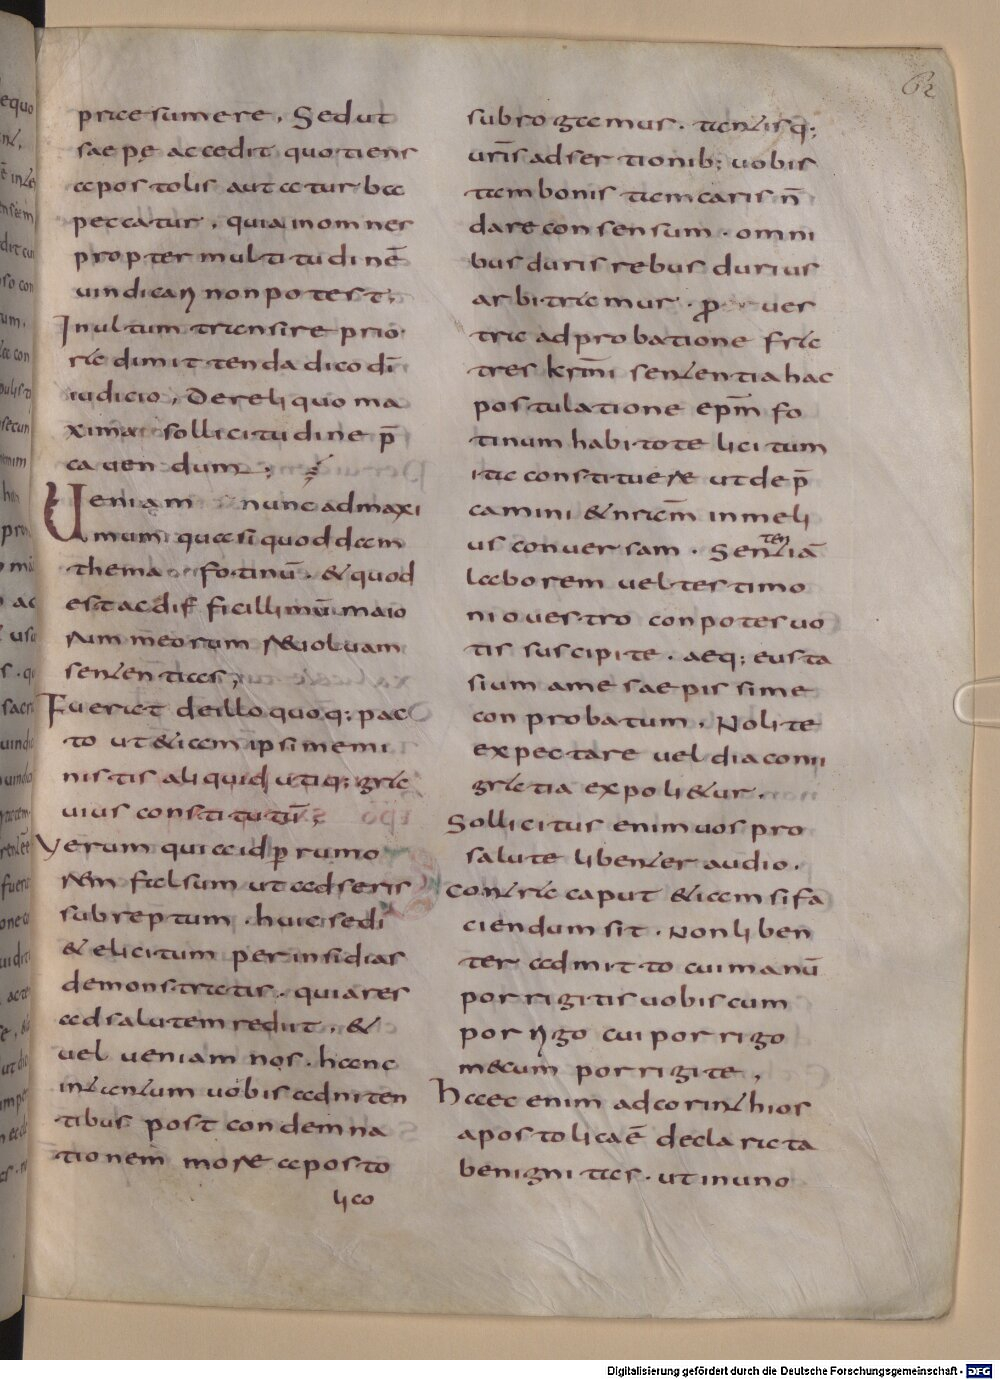 62
praesumere. Sed ut
saepę accedit quotiens
apostolis aut a turba
peccatur. quia in omnes
propter multitudinē
uindicari non potest;
Inultum transire prio
ra dimittenda dico dī
iudicio. De reliquo ma
xima sollicitudine p̄
cauendum;
Ueniam nunc ad maxi
mum quasi quoddam
thema fotinū. & quod
est ac difficillimū maio
rum meorum reuoluam
sententias;
Fuerat de illo quoq; pac
to ut etiam ipsi memi
nistis aliquid utiq; gra
uius constitutū;
Verum quia id p rumo
rem falsum ut adseris
subreptum. huic sedi
& elicitum per insidias
demonstratis. quia res
ad salutem rediit. &
uel ueniam nos. hanc
intentum uobis adniten
tibus post condemna
tionem more aposto
lico
subrogamus. tantisq;
uris adsertionib; uobis
tam bonis tam caris n̄
dare consensum. omni
bus duris rebus durius
arbitramur. pro ues
tra adprobatione fra
tres krmi sententia hac
postulatione epm fo
tinum habitote licitum
ita constituere ut dep̄
camini & nram in meli
us conuersam. Sententiā
laborem uel testimo
nio uestro conpotes uo
tis suscipite. aeq; eusta
sium a me saepissime
conprobatum. Nolite
expectare uel diaconii
gratia expolietur.
Sollicitus enim uos pro
salute libenter audio.
Contra caput etiam si fa
ciendum sit. Non liben
ter admitto cui manū
porrigitis uobiscum
porrigo cui porrigo
mecum porrigite.
Haec enim ad corinthios
apostolica ē declarata
benignitas. ut in uno
Digitalisierung gefördert durch die Deutsche Forschungsgemeinschaft - DFG